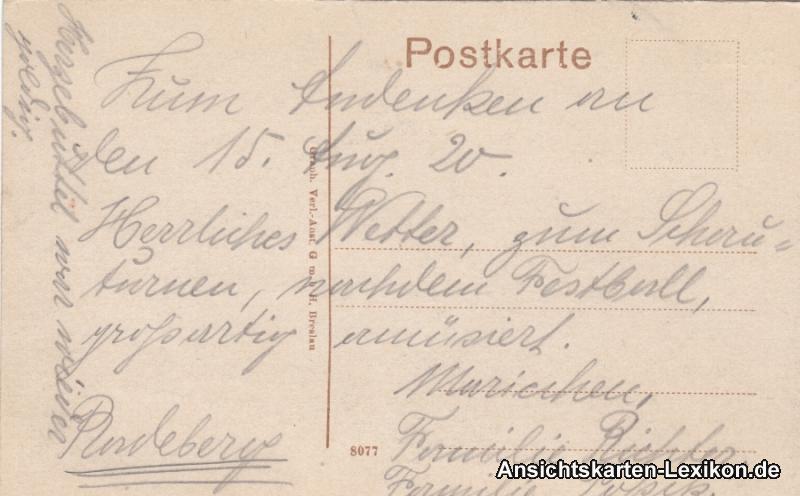 Postkarte
Zum Andenken an
den 15. Aug. 20.
Herrliches Wetter, zum Schau-
turnen, nachdem Festball,
großartig amüsiert.
Mariechen,
Radeberg
Familie Richter,
Familie
war wieder
goldig.
Graph. Verl.-Anst. G. m. b. H. Breslau
8077
Ansichtskarten-Lexikon.de